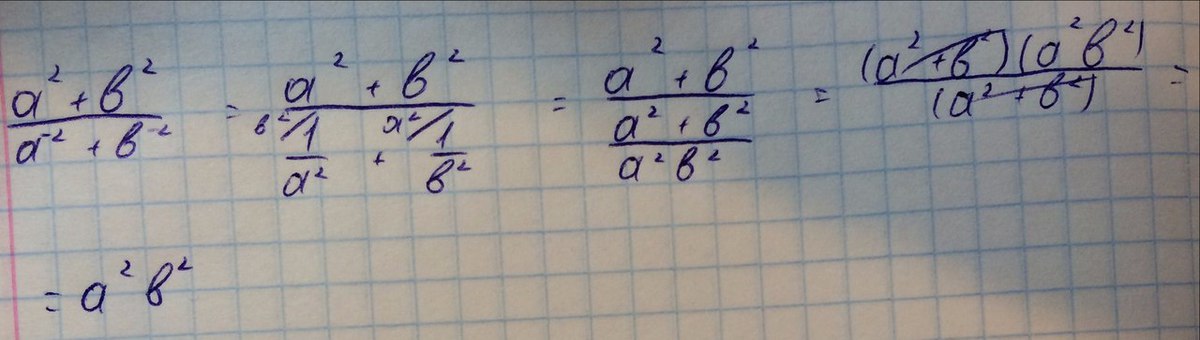 (a² + b²)/(a⁻² + b⁻²) = (a² + b²)/(b²/1/a² + a²/1/b²) = (a² + b²)/((a² + b²)/(a² b²)) = (a² + b²)(a² b²)/(a² + b²) =
= a² b²